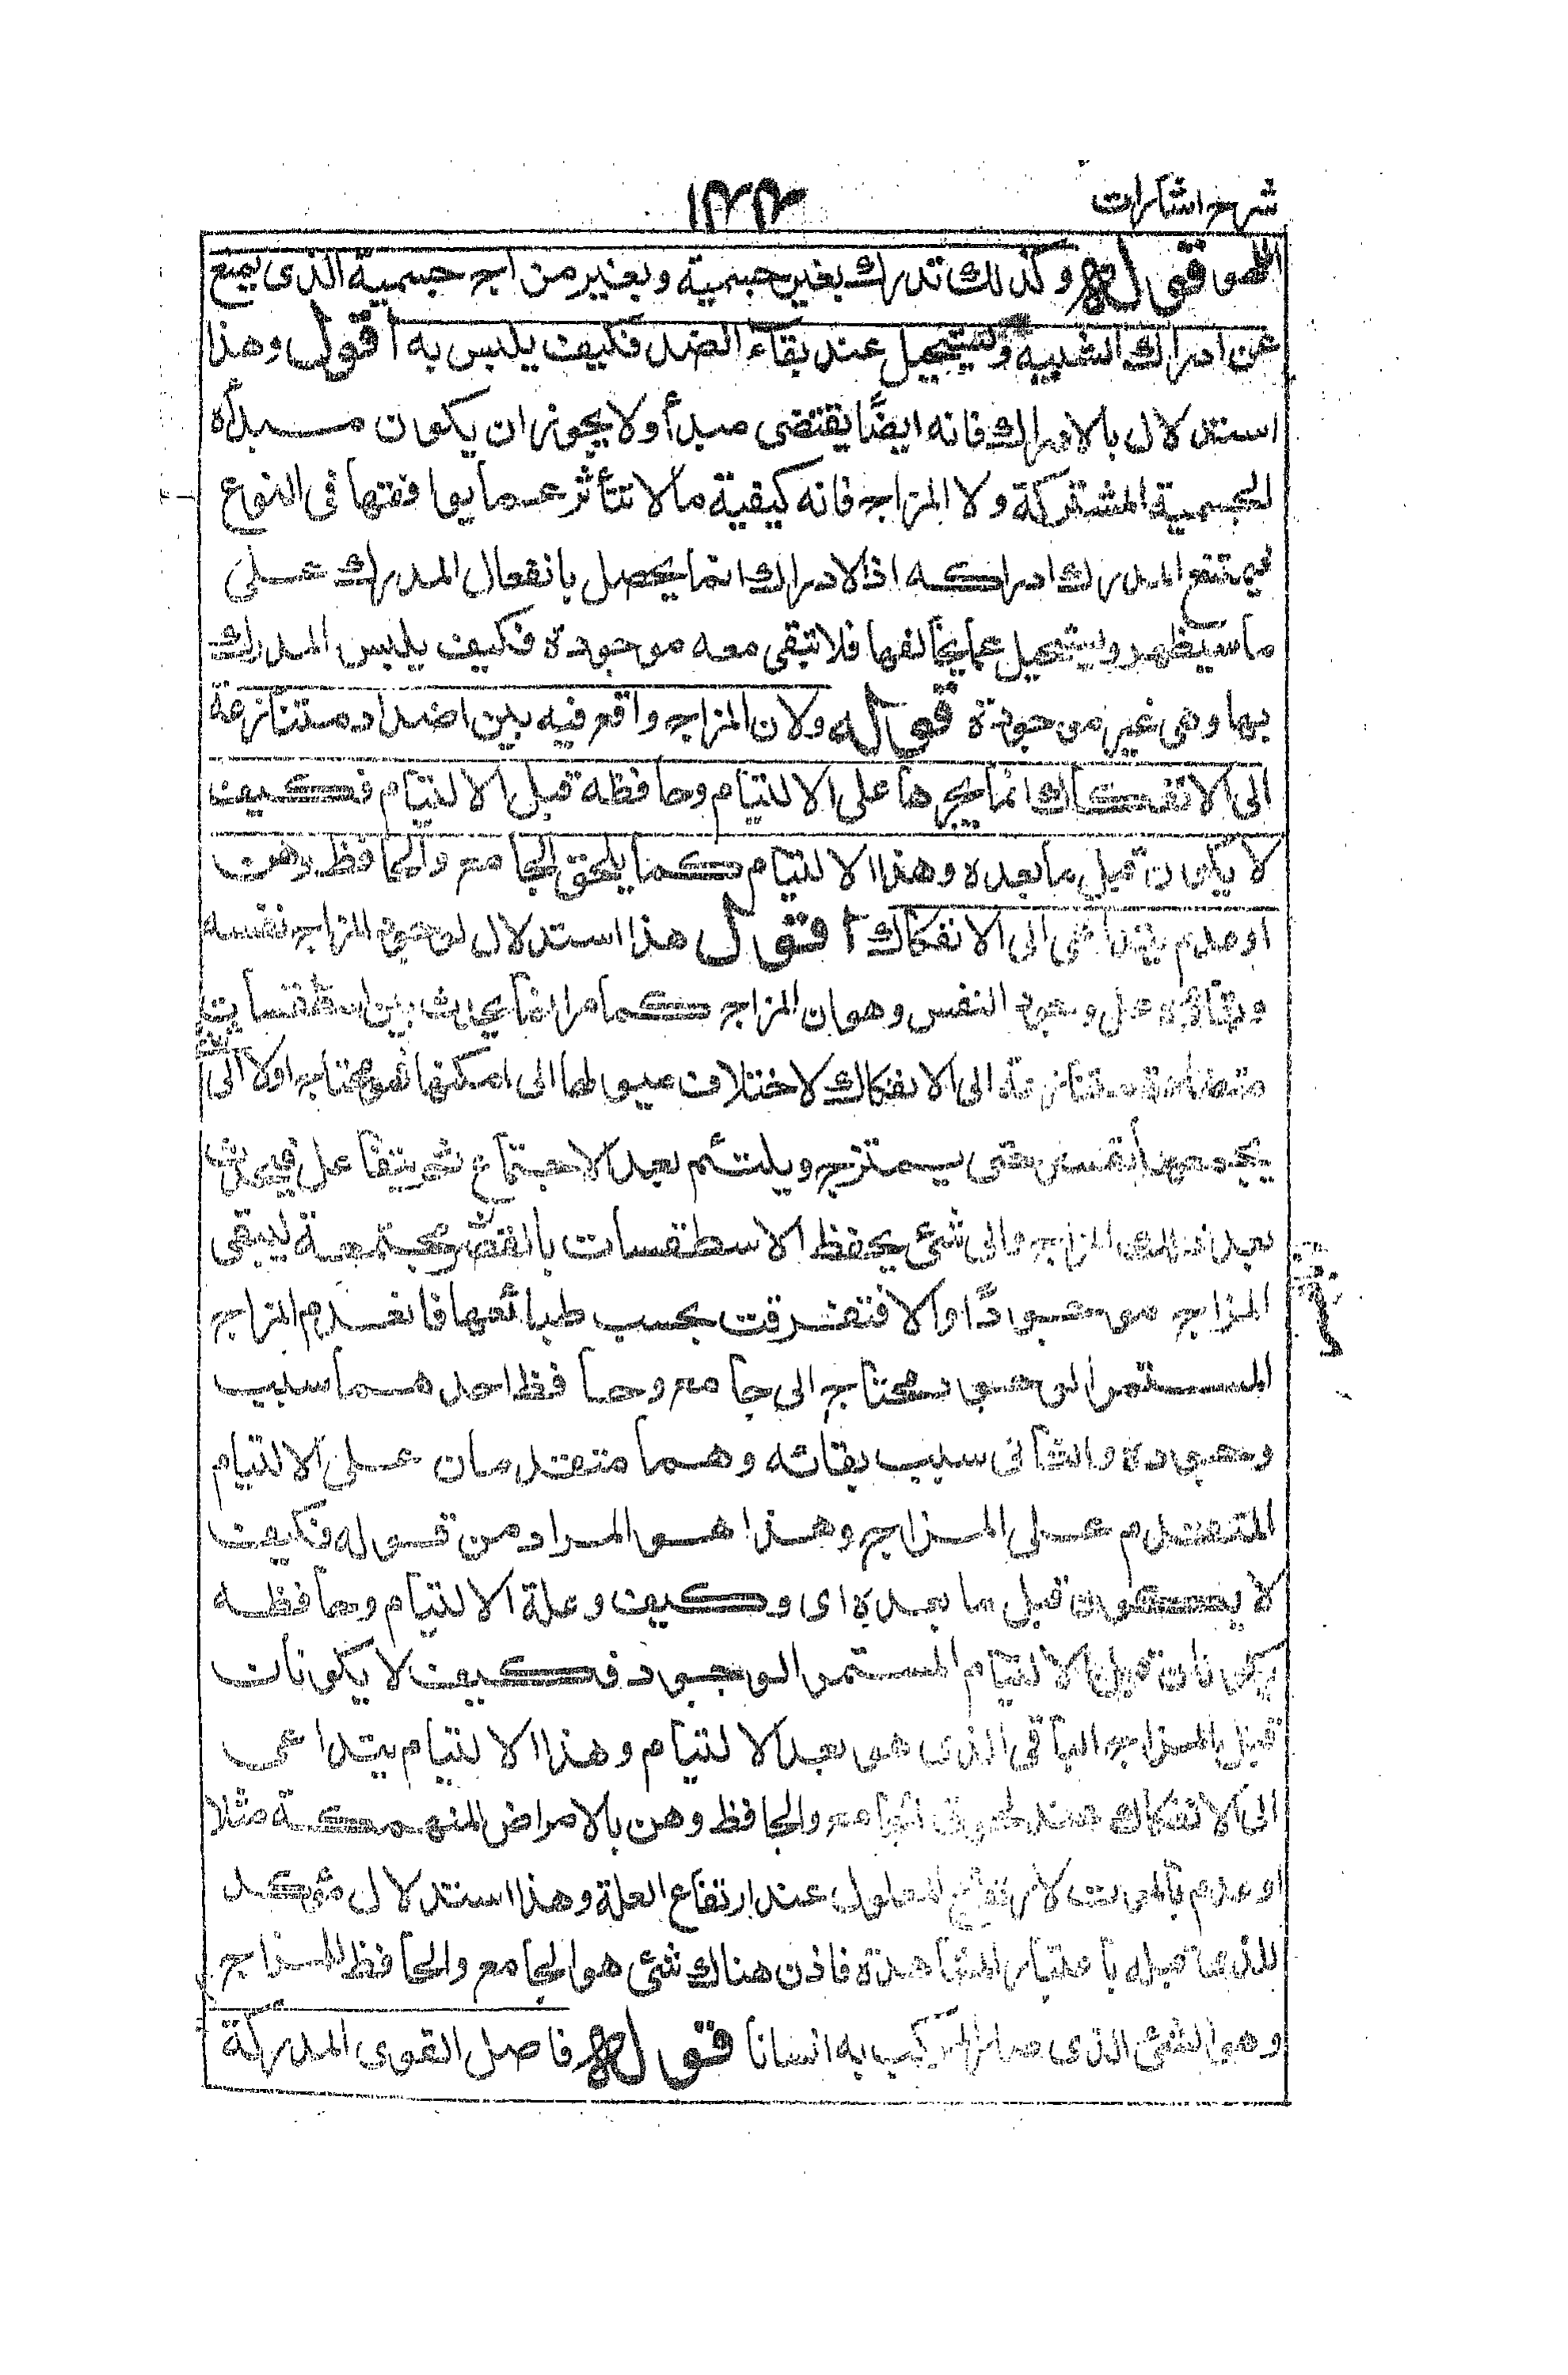 شرح اشارات
١٢٢
قوله وكذلك تدرك بغير جسمية وبغير مزاج جسمية الذي يمنع
عن ادراك الشبيه ويستحيل عند بقاء الضد فكيف يلبس به اقول وهذا
استدلال بالادراك فانه ايضًا يقتضى مبدأ ولا يجوز ان يكون مبدأه
الجسمية المشتركة ولا المزاج فانه كيفية ما لا تتأثر عما يوافقها فى النوع
فيمتنع المدرك ادراكه اذ الادراك انما يحصل بانفعال المدرك على
ما سيظهر ويستحيل عما يخالفها فلا تبقى معه موجودة فكيف يلبس المدرك
بها وهى غير موجودة قوله ولان المزاج واقع فيه بين اضداد متنازعة
الى الانفكاك انما يجبرها على الالتيام وحافظه قبل الالتيام فكيف
لا يكون قبل ما بعده وهذا الالتيام كما يلحق الجامع والحافظ وهن
او عدم يتداعى الى الانفكاك اقول هذا استدلال لوجود المزاج نفسه
وبقاؤه على وجود النفس وهو ان المزاج كما مر انما يحدث بين اسطقسات
متضادة متنازعة الى الانفكاك لاختلاف ميولها الى امكنتها فهو محتاج اولا الى
يجمعها بقسر حتى يمتزج ويلتئم بعد الاجتماع ثم يتفاعل فيحدث
بعد ذلك المزاج والى شئ يحفظ الاسطقسات بالقسر مجتمعة ليبقى
المزاج موجودًا والا فتفرقت بحسب طبائعها فانعدم المزاج
المستمر الوجود محتاج الى جامع وحافظ احدهما سبب
وجوده والثانى سبب بقائه وهما متقدمان على الالتيام
المتقدم على المزاج وهذا هو المراد من قوله فكيف
لا يكون قبل ما بعده اى وكيف وعلة الالتيام وحافظه
يكونان قبل الالتيام المستمر الوجود فكيف لا يكونان
قبل المزاج الباقى الذى هو بعد الالتيام وهذا الالتيام يتداعى
الى الانفكاك عند لحوق الجامع والحافظ وهن بالامراض المنهمكة مثلا
او عدم بالموت لارتفاع المعلول عند ارتفاع العلة وهذا استدلال مؤكد
للذى قبله باعتبار المشاهدة فاذن هناك شئ هو الجامع والحافظ للمزاج
وهو الشئ الذى صار المركب به انسانا قوله فاصل القوى المدركة